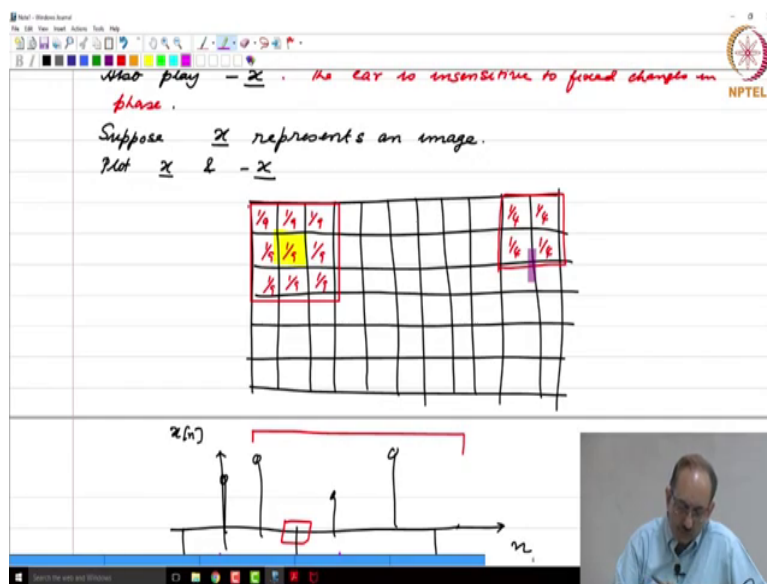 Note1 - Windows Journal
File Edit View Insert Actions Tools Help
NPTEL
Also play - x . The ear is insensitive to fixed changes in
phase .
Suppose x represents an image.
Plot x & - x
1/9 1/9 1/9 1/4 1/4
1/9 1/9 1/9 1/4 1/4
1/9 1/9 1/9
x[n]
n
Search the web and Windows